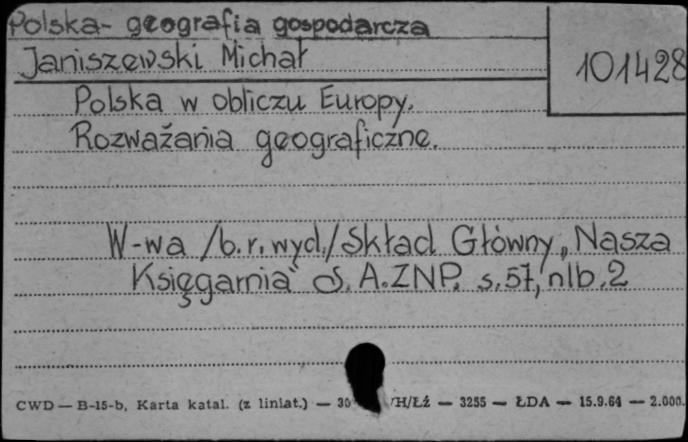 Polska - geografia gospodarcza
Janiszewski Michał
101428
Polska w obliczu Europy.
Rozważania geograficzne.
W-wa /b.r.wyd./ Skład Główny „Nasza
Księgarnia" S.A.ZNP. s.57, nlb.2
CWD — B-15-b, Karta katal. (z liniat.) — /H/Łź — 3255 — ŁDA — 15.9.64 — 2.000.